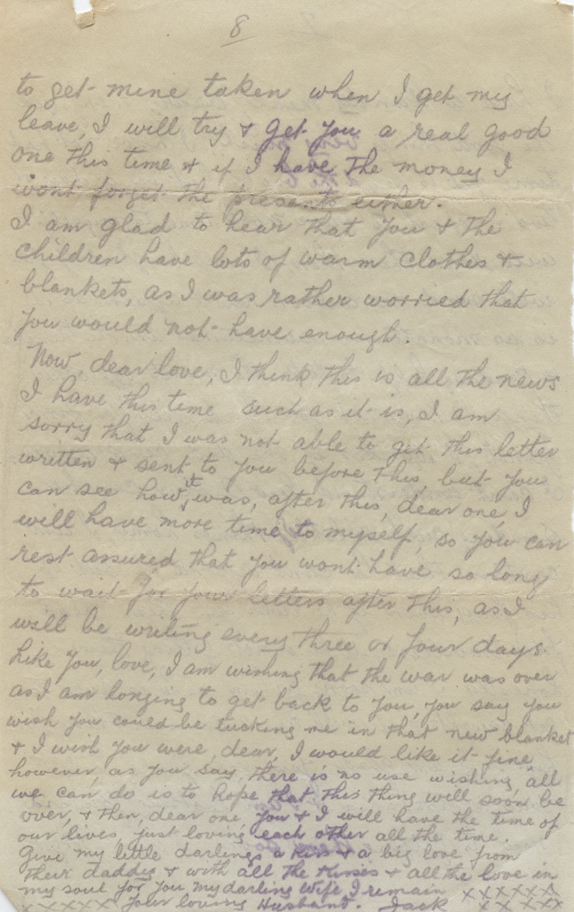 8
to get mine taken when I get my
leave, I will try & get you a real good
one this time & if I have the money I
wont forget the presents either.
I am glad to hear that you & the
children have lots of warm clothes &
blankets, as I was rather worried that
you would not have enough.
Now, dear love, I think this is all the news
I have this time such as it is, I am
sorry that I was not able to get this letter
written & sent to you before this, but you
can see how it was, after this, dear one, I
will have more time to myself, so you can
rest assured that you wont have so long
to wait for your letters after this, as I
will be writing every three or four days.
Like you, love, I am wishing that the war was over
as I am longing to get back to you, you say you
wish you could be tucking me in that new blanket
& I wish you were, dear, I would like it fine,
however, as you say, there is no use wishing, all
we can do is to hope that this thing will soon be
over, & then, dear one you & I will have the time of
our lives, just loving each other all the time.
Give my little darlings a kiss & a big love from
their daddy & with all the kisses & all the love in
my soul for you, my darling wife, I remain xxxxxx
xxxxxxx Your loving Husband. Jack xxxxx